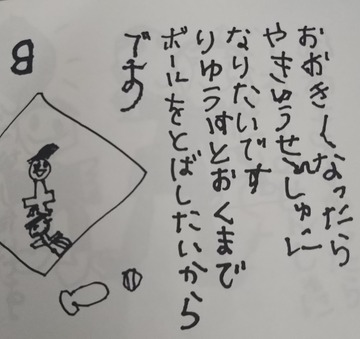 おおきくなったら
やきゅうせんしゅに
なりたいです
りゆうすとおくまで
ボールをとばしたいから
です
B